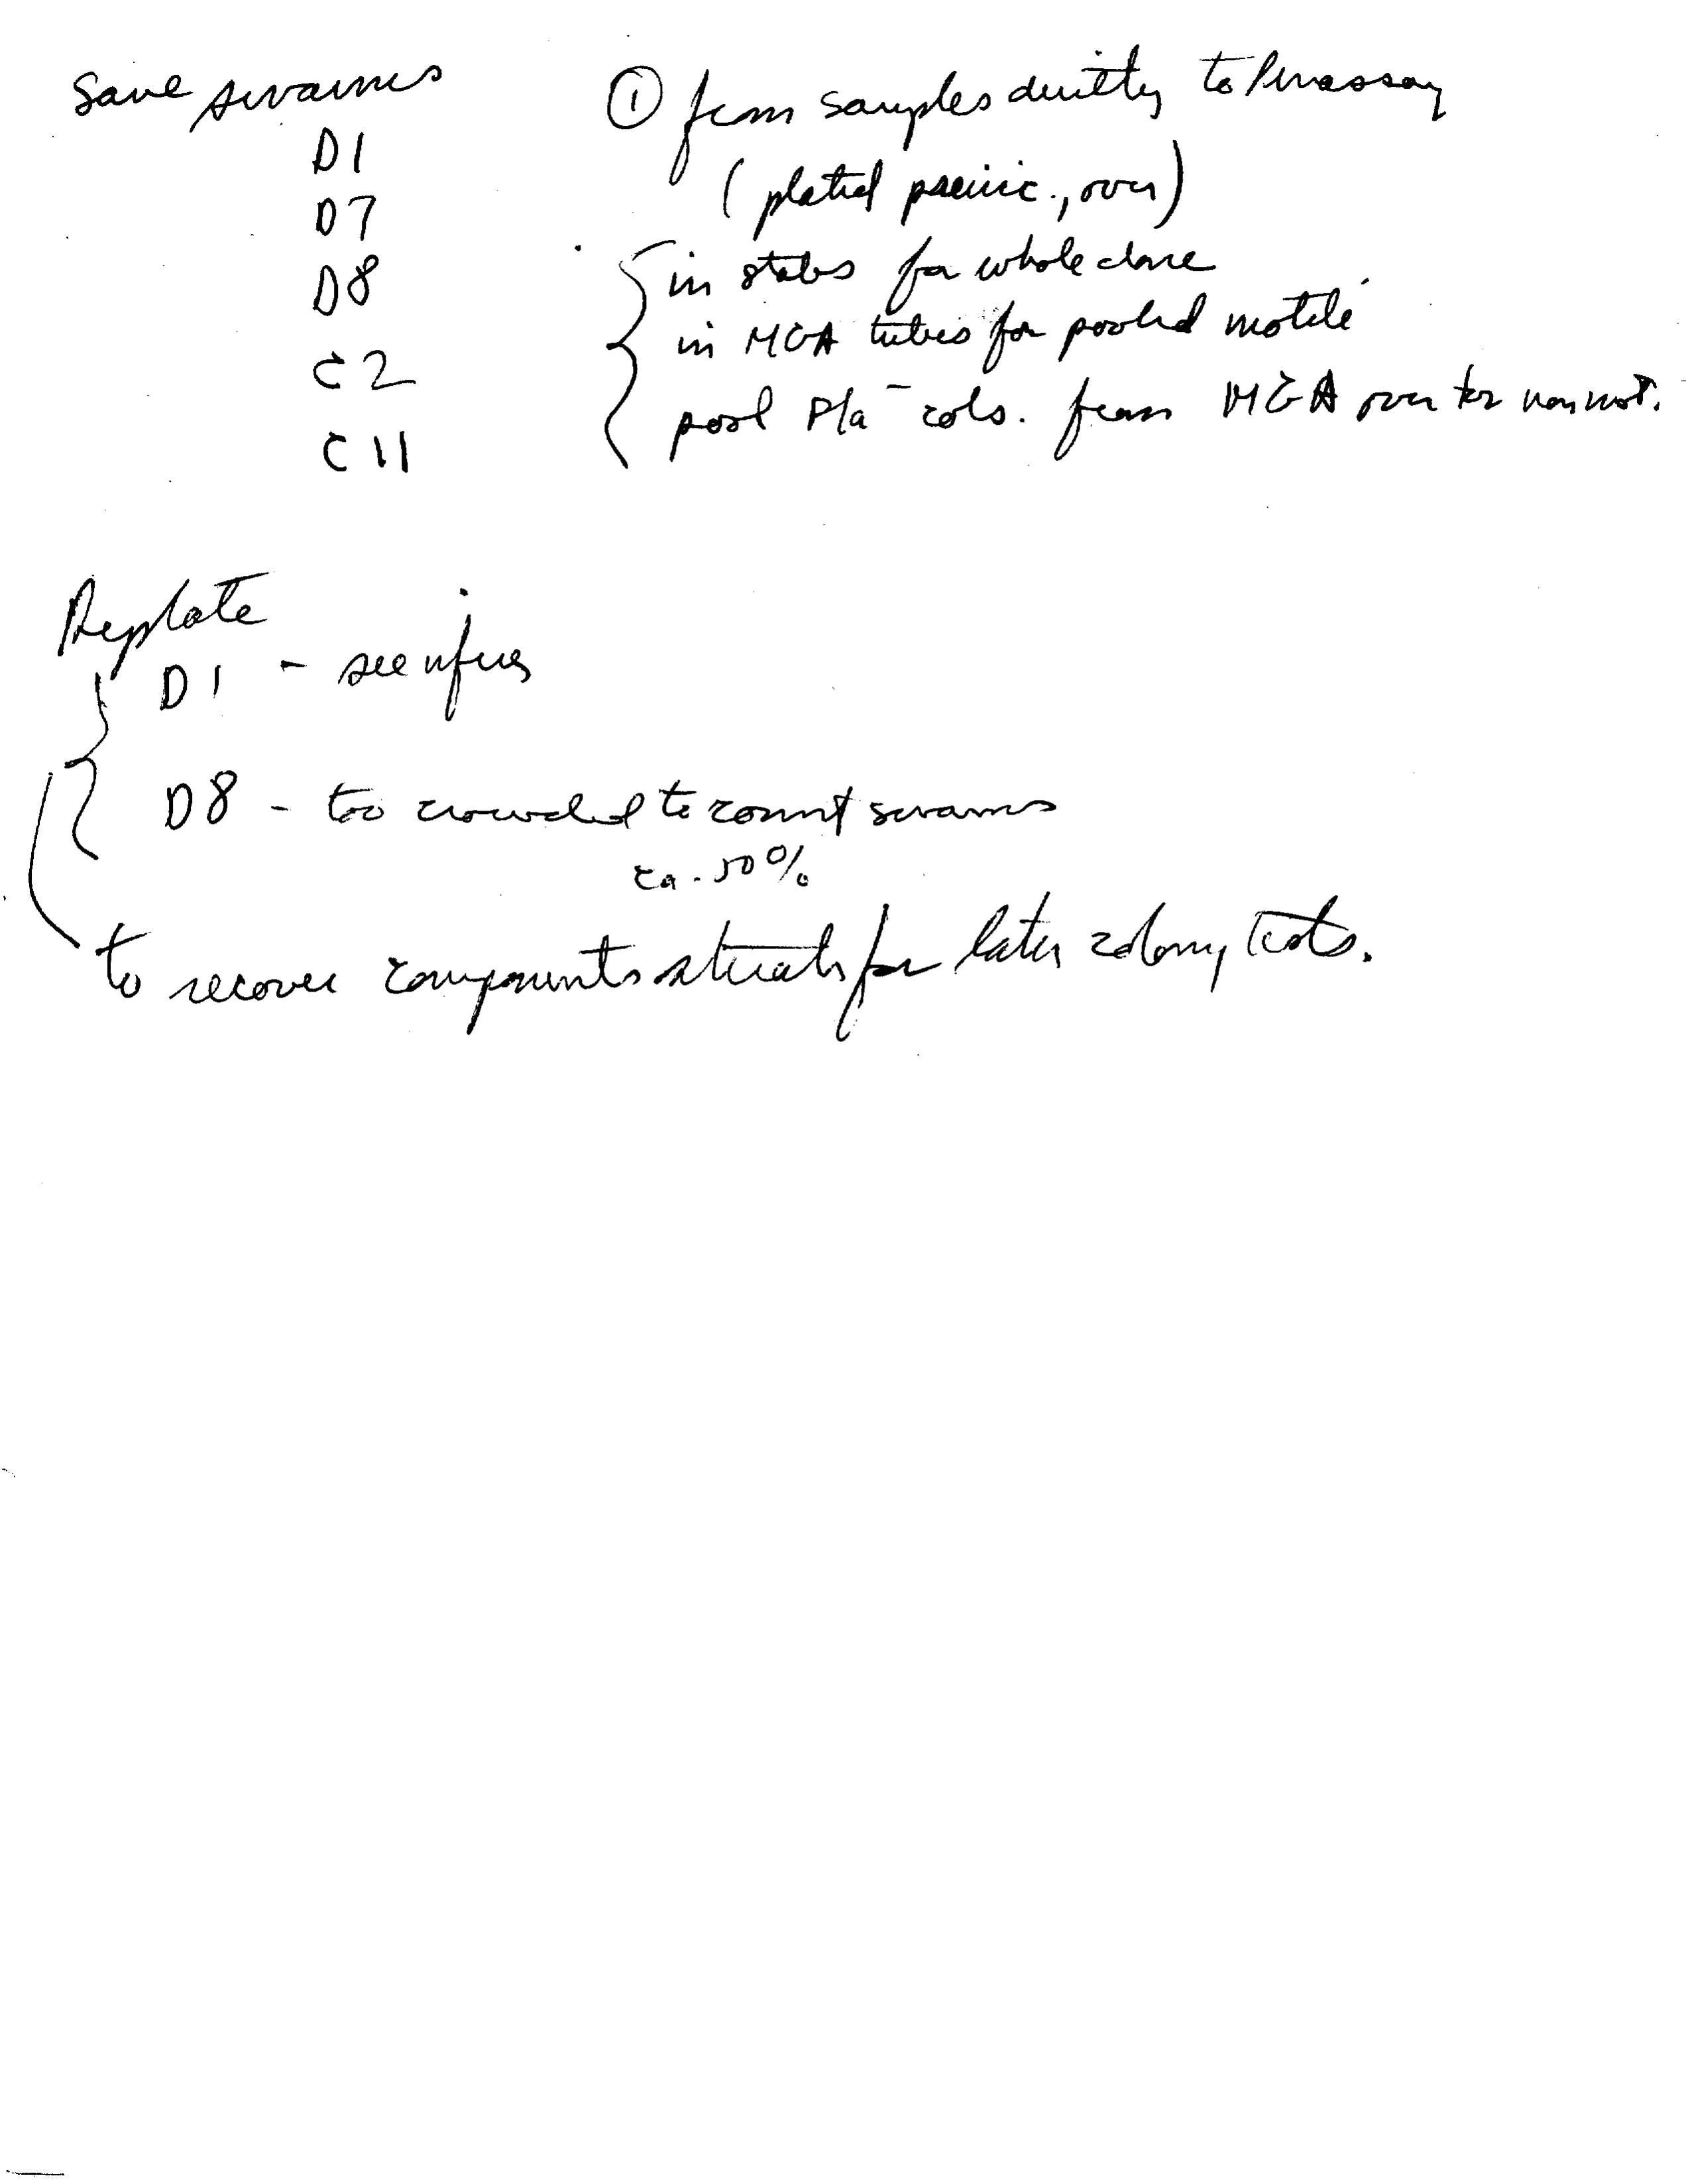 Save swarms
D1
D7
D8
C2
C11
① from samples directly to Penassay
( plated previc., over)
in stabs for whole clone
in MGA tubes for pooled motile
pool Fla⁻ cols. from MGA over for nonmot.
Replate
D1 - see
D8 - too crowded to count swarms
ca. 50%
to recover components for later colony tests.